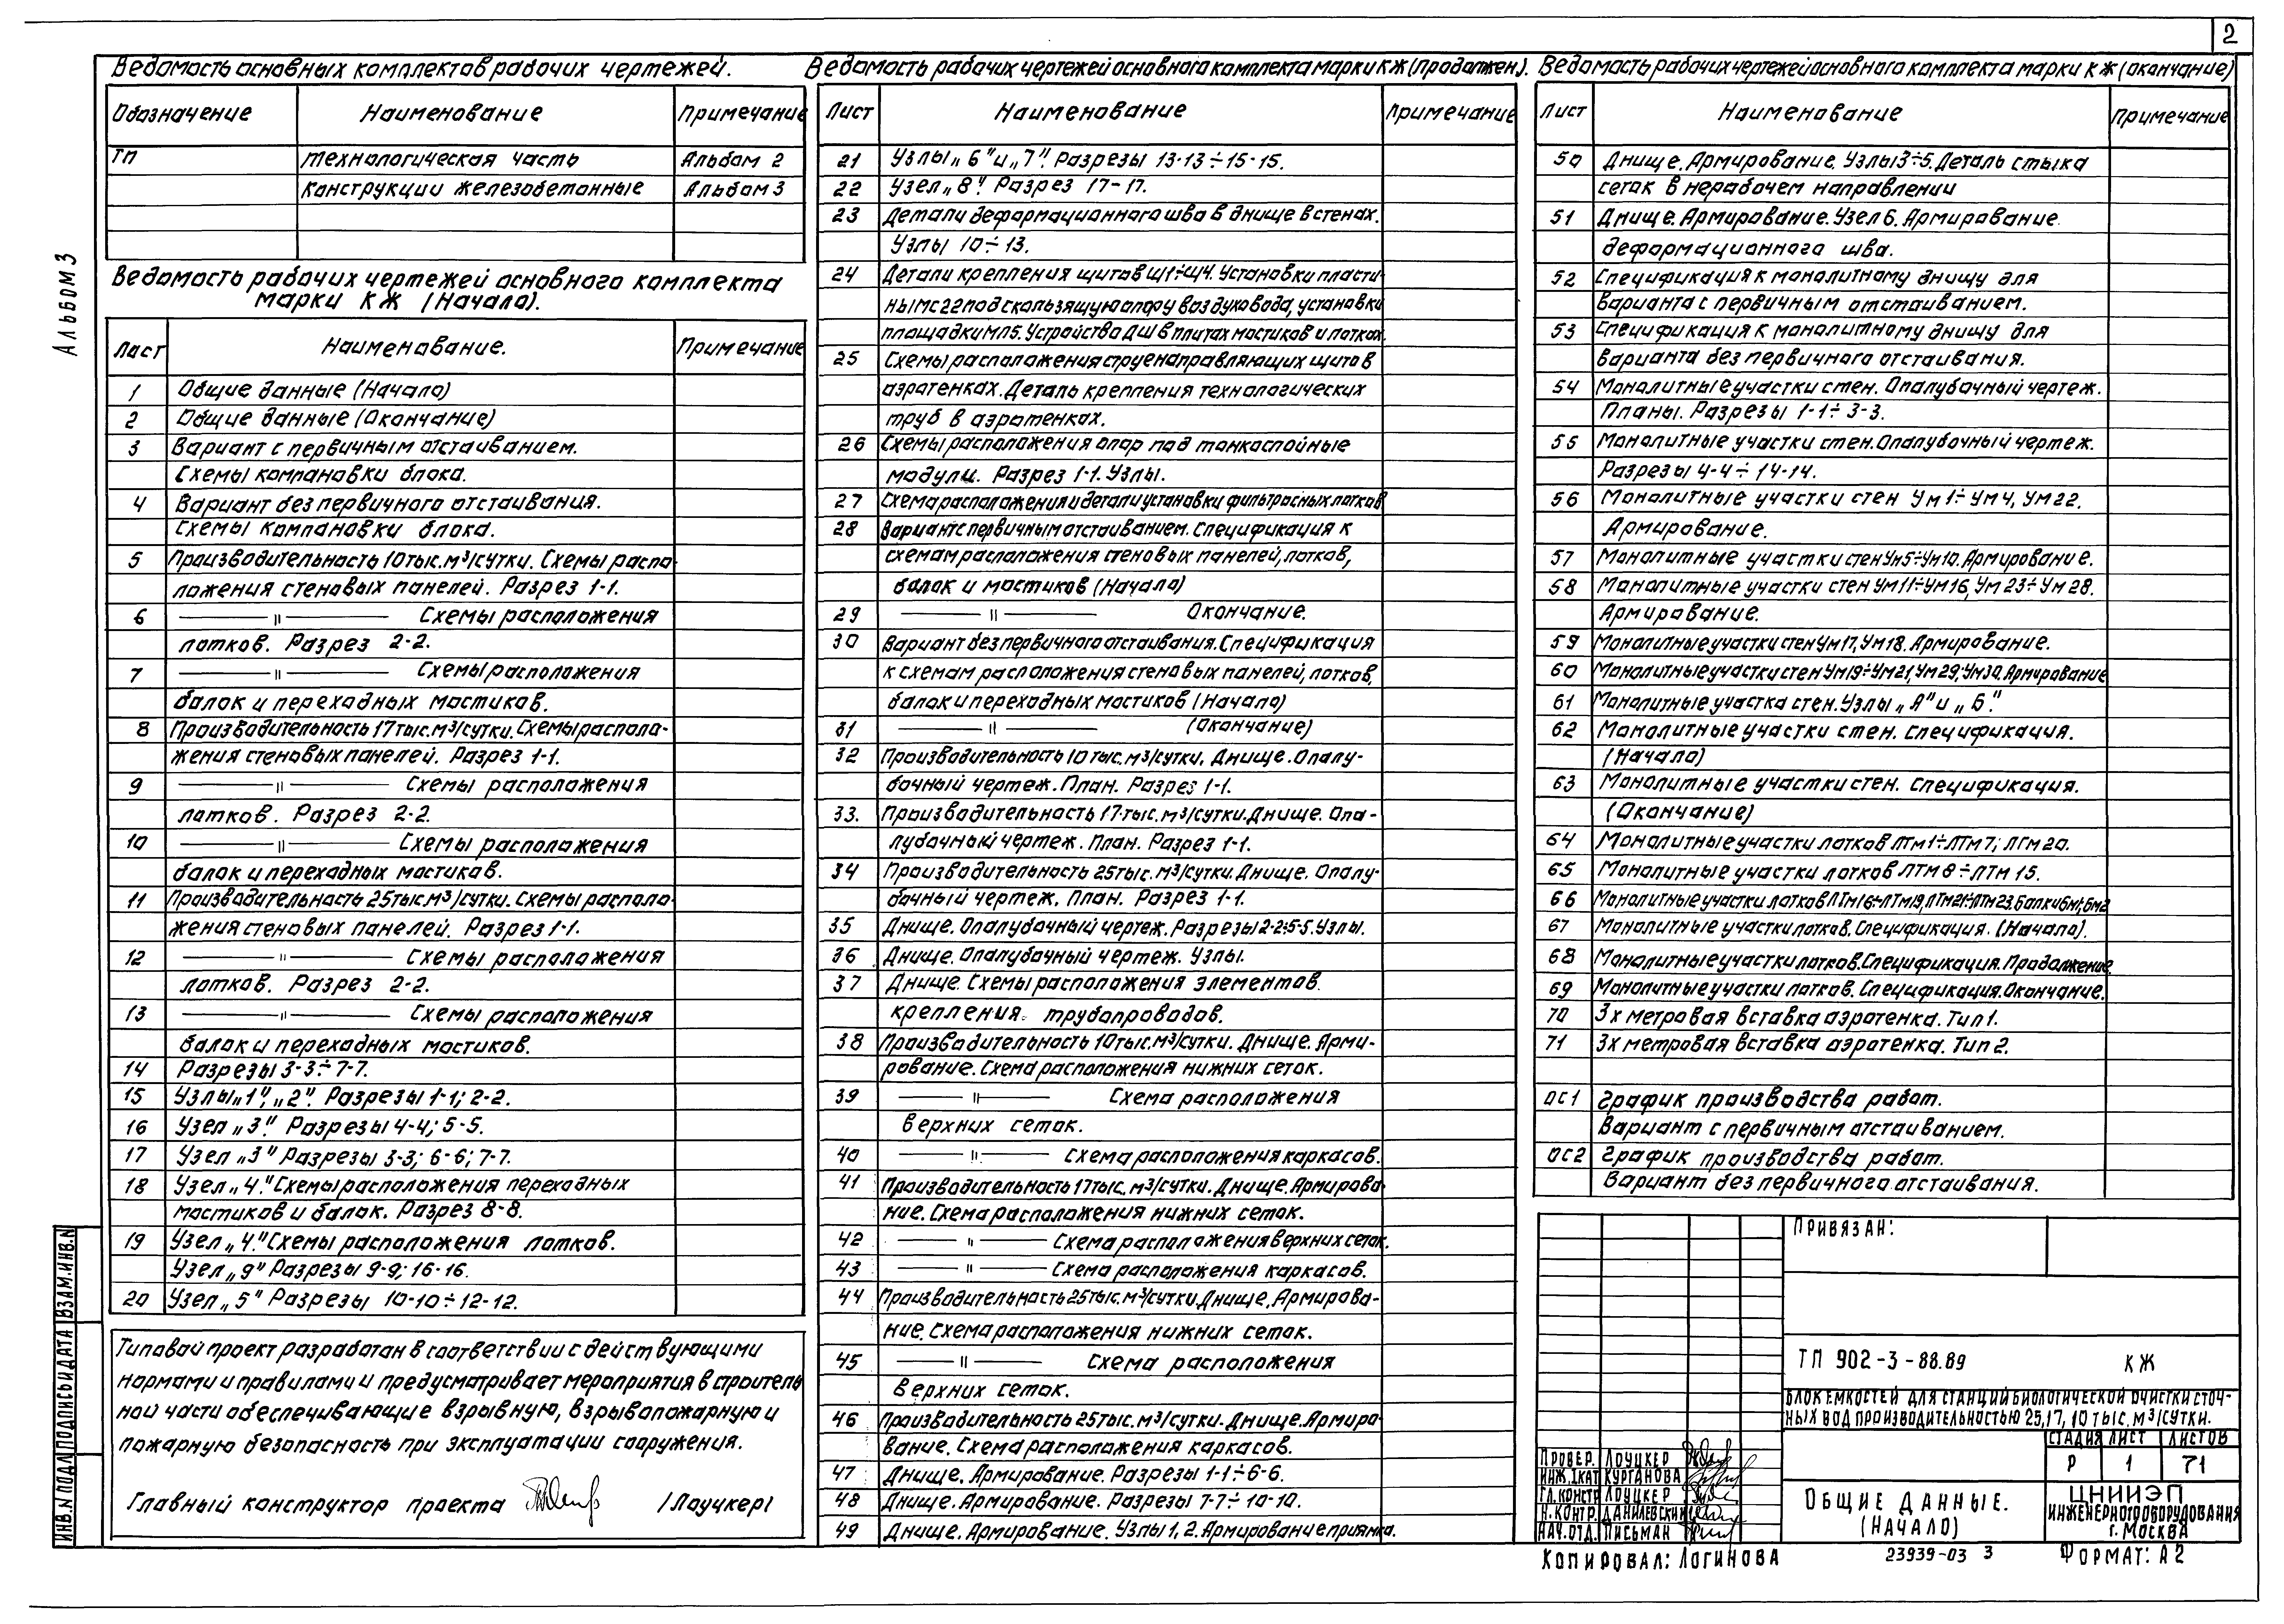 2
Альбом 3
Ведомость основных комплектов рабочих чертежей.
Обозначение Наименование Примечание
ТП Технологическая часть Альбом 2
Конструкции железобетонные Альбом 3
Ведомость рабочих чертежей основного комплекта
марки КЖ (Начало).
Лист Наименование. Примечание
1 Общие данные (Начало)
2 Общие данные (Окончание)
3 Вариант с первичным отстаиванием.
Схемы компановки блока.
4 Вариант без первичного отстаивания.
Схемы компановки блока.
5 Производительность 10 тыс. м³/сутки. Схемы распо-
ложения стеновых панелей. Разрез 1-1.
6 —〃— Схемы расположения
лотков. Разрез 2-2.
7 —〃— Схемы расположения
балок и переходных мостиков.
8 Производительность 17 тыс. м³/сутки. Схемы располо-
жения стеновых панелей. Разрез 1-1.
9 —〃— Схемы расположения
лотков. Разрез 2-2.
10 —〃— Схемы расположения
балок и переходных мостиков.
11 Производительность 25 тыс. м³/сутки. Схемы располо-
жения стеновых панелей. Разрез 1-1.
12 —〃— Схемы расположения
лотков. Разрез 2-2.
13 —〃— Схемы расположения
балок и переходных мостиков.
14 Разрезы 3-3÷7-7.
15 Узлы „1", „2". Разрезы 1-1; 2-2.
16 Узел „3". Разрезы 4-4; 5-5.
17 Узел „3" Разрезы 3-3; 6-6; 7-7.
18 Узел „4." Схемы расположения переходных
мостиков и балок. Разрез 8-8.
19 Узел „4." Схемы расположения лотков.
Узел „9" Разрезы 9-9; 16-16.
20 Узел „5" Разрезы 10-10÷12-12.
Типовой проект разработан в соответствии с действующими
нормами и правилами и предусматривает мероприятия в строитель
ной части обеспечивающие взрывную, взрывопожарную и
пожарную безопасность при эксплуатации сооружения.
Главный конструктор проекта /Лоуцкер/
Ведомость рабочих чертежей основного комплекта марки КЖ (продолжен).
Лист Наименование Примечание
21 Узлы „6" и „7". Разрезы 13-13÷15-15.
22 Узел „8". Разрез 17-17.
23 Детали деформационного шва в днище в стенах.
Узлы 10÷13.
24 Детали крепления щитов Щ1÷Щ4. Установки пласти-
ны МС22 под скользящую опору воздуховода, установки
площадки МП5. Устройства ДШ в плитах мостиков и лотках.
25 Схемы расположения струенаправляющих щитов в
аэротенках. Деталь крепления технологических
труб в аэротенках.
26 Схемы расположения опор под тонкослойные
модули. Разрез 1-1. Узлы.
27 Схема расположения и детали установки фильтросных лотков
28 Вариант с первичным отстаиванием. Спецификация к
схемам расположения стеновых панелей, лотков,
балок и мостиков (Начало)
29 —〃— Окончание.
30 Вариант без первичного отстаивания. Спецификация
к схемам расположения стеновых панелей, лотков,
балок и переходных мостиков (Начало)
31 —〃— (Окончание)
32 Производительность 10 тыс. м³/сутки. Днище. Опалу-
бочный чертеж. План. Разрез 1-1.
33. Производительность 17 тыс. м³/сутки. Днище. Опа-
лубочный чертеж. План. Разрез 1-1.
34 Производительность 25 тыс. м³/сутки. Днище. Опалу-
бочный чертеж. План. Разрез 1-1.
35 Днище. Опалубочный чертеж. Разрезы 2-2÷5-5. Узлы.
36 Днище. Опалубочный чертеж. Узлы.
37 Днище. Схемы расположения элементов
крепления трубопроводов.
38 Производительность 10 тыс. м³/сутки. Днище. Арми-
рование. Схема расположения нижних сеток.
39 —〃— Схема расположения
верхних сеток.
40 —〃— Схема расположения каркасов.
41 Производительность 17 тыс. м³/сутки. Днище. Армирова-
ние. Схема расположения нижних сеток.
42 —〃— Схема расположения верхних сеток.
43 —〃— Схема расположения каркасов.
44 Производительность 25 тыс. м³/сутки. Днище. Армирова-
ние. Схема расположения нижних сеток.
45 —〃— Схема расположения
верхних сеток.
46 Производительность 25 тыс. м³/сутки. Днище. Армиро-
вание. Схема расположения каркасов.
47 Днище. Армирование. Разрезы 1-1÷6-6.
48 Днище. Армирование. Разрезы 7-7÷10-10.
49 Днище. Армирование. Узлы 1, 2. Армирование приямка.
Ведомость рабочих чертежей основного комплекта марки КЖ (окончание)
Лист Наименование Примечание
50 Днище. Армирование. Узлы 3÷5. Деталь стыка
сеток в нерабочем направлении
51 Днище. Армирование. Узел 6. Армирование
деформационного шва.
52 Спецификация к монолитному днищу для
варианта с первичным отстаиванием.
53 Спецификация к монолитному днищу для
варианта без первичного отстаивания.
54 Монолитные участки стен. Опалубочный чертеж.
Планы. Разрезы 1-1÷3-3.
55 Монолитные участки стен. Опалубочный чертеж.
Разрезы 4-4÷14-14.
56 Монолитные участки стен Ум1÷Ум4, Ум22.
Армирование.
57 Монолитные участки стен Ум5÷Ум10. Армирование.
58 Монолитные участки стен Ум11÷Ум16, Ум23÷Ум28.
Армирование.
59 Монолитные участки стен Ум17, Ум18. Армирование.
60 Монолитные участки стен Ум19÷Ум21, Ум29; Ум30. Армирование
61 Монолитные участка стен. Узлы „А" и „Б."
62 Монолитные участки стен. Спецификация.
(Начало)
63 Монолитные участки стен. Спецификация.
(Окончание)
64 Монолитные участки лотков ЛТм1÷ЛТм7; ЛТм20.
65 Монолитные участки лотков ЛТм8÷ЛТм15.
66 Монолитные участки лотков ЛТм16÷ЛТм19, ЛТм21÷ЛТм23. Балки Бм1, Бм2
67 Монолитные участки лотков. Спецификация. (Начало).
68 Монолитные участки лотков. Спецификация. Продолжение
69 Монолитные участки лотков. Спецификация. Окончание.
70 3х метровая вставка аэротенка. Тип 1.
71 3х метровая вставка аэротенка. Тип 2.
ОС1 График производства работ.
Вариант с первичным отстаиванием.
ОС2 График производства работ.
Вариант без первичного отстаивания.
Привязан:
ТП 902-3-88.89 КЖ
Блок емкостей для станций биологической очистки сточ-
ных вод производительностью 25, 17, 10 тыс. м³/сутки.
Стадия Лист Листов
Р 1 71
Провер. Лоуцкер
Инж. 1кат Курганова
Гл. констр Лоуцкер
Н. контр. Данилевский
Нач. отд. Письман
Общие данные.
(Начало)
ЦНИИЭП
инженерного оборудования
г. Москва
Копировал: Логинова
23939-03 3
Формат: А2
Инв. N подл Подпись и дата Взам. инв. N